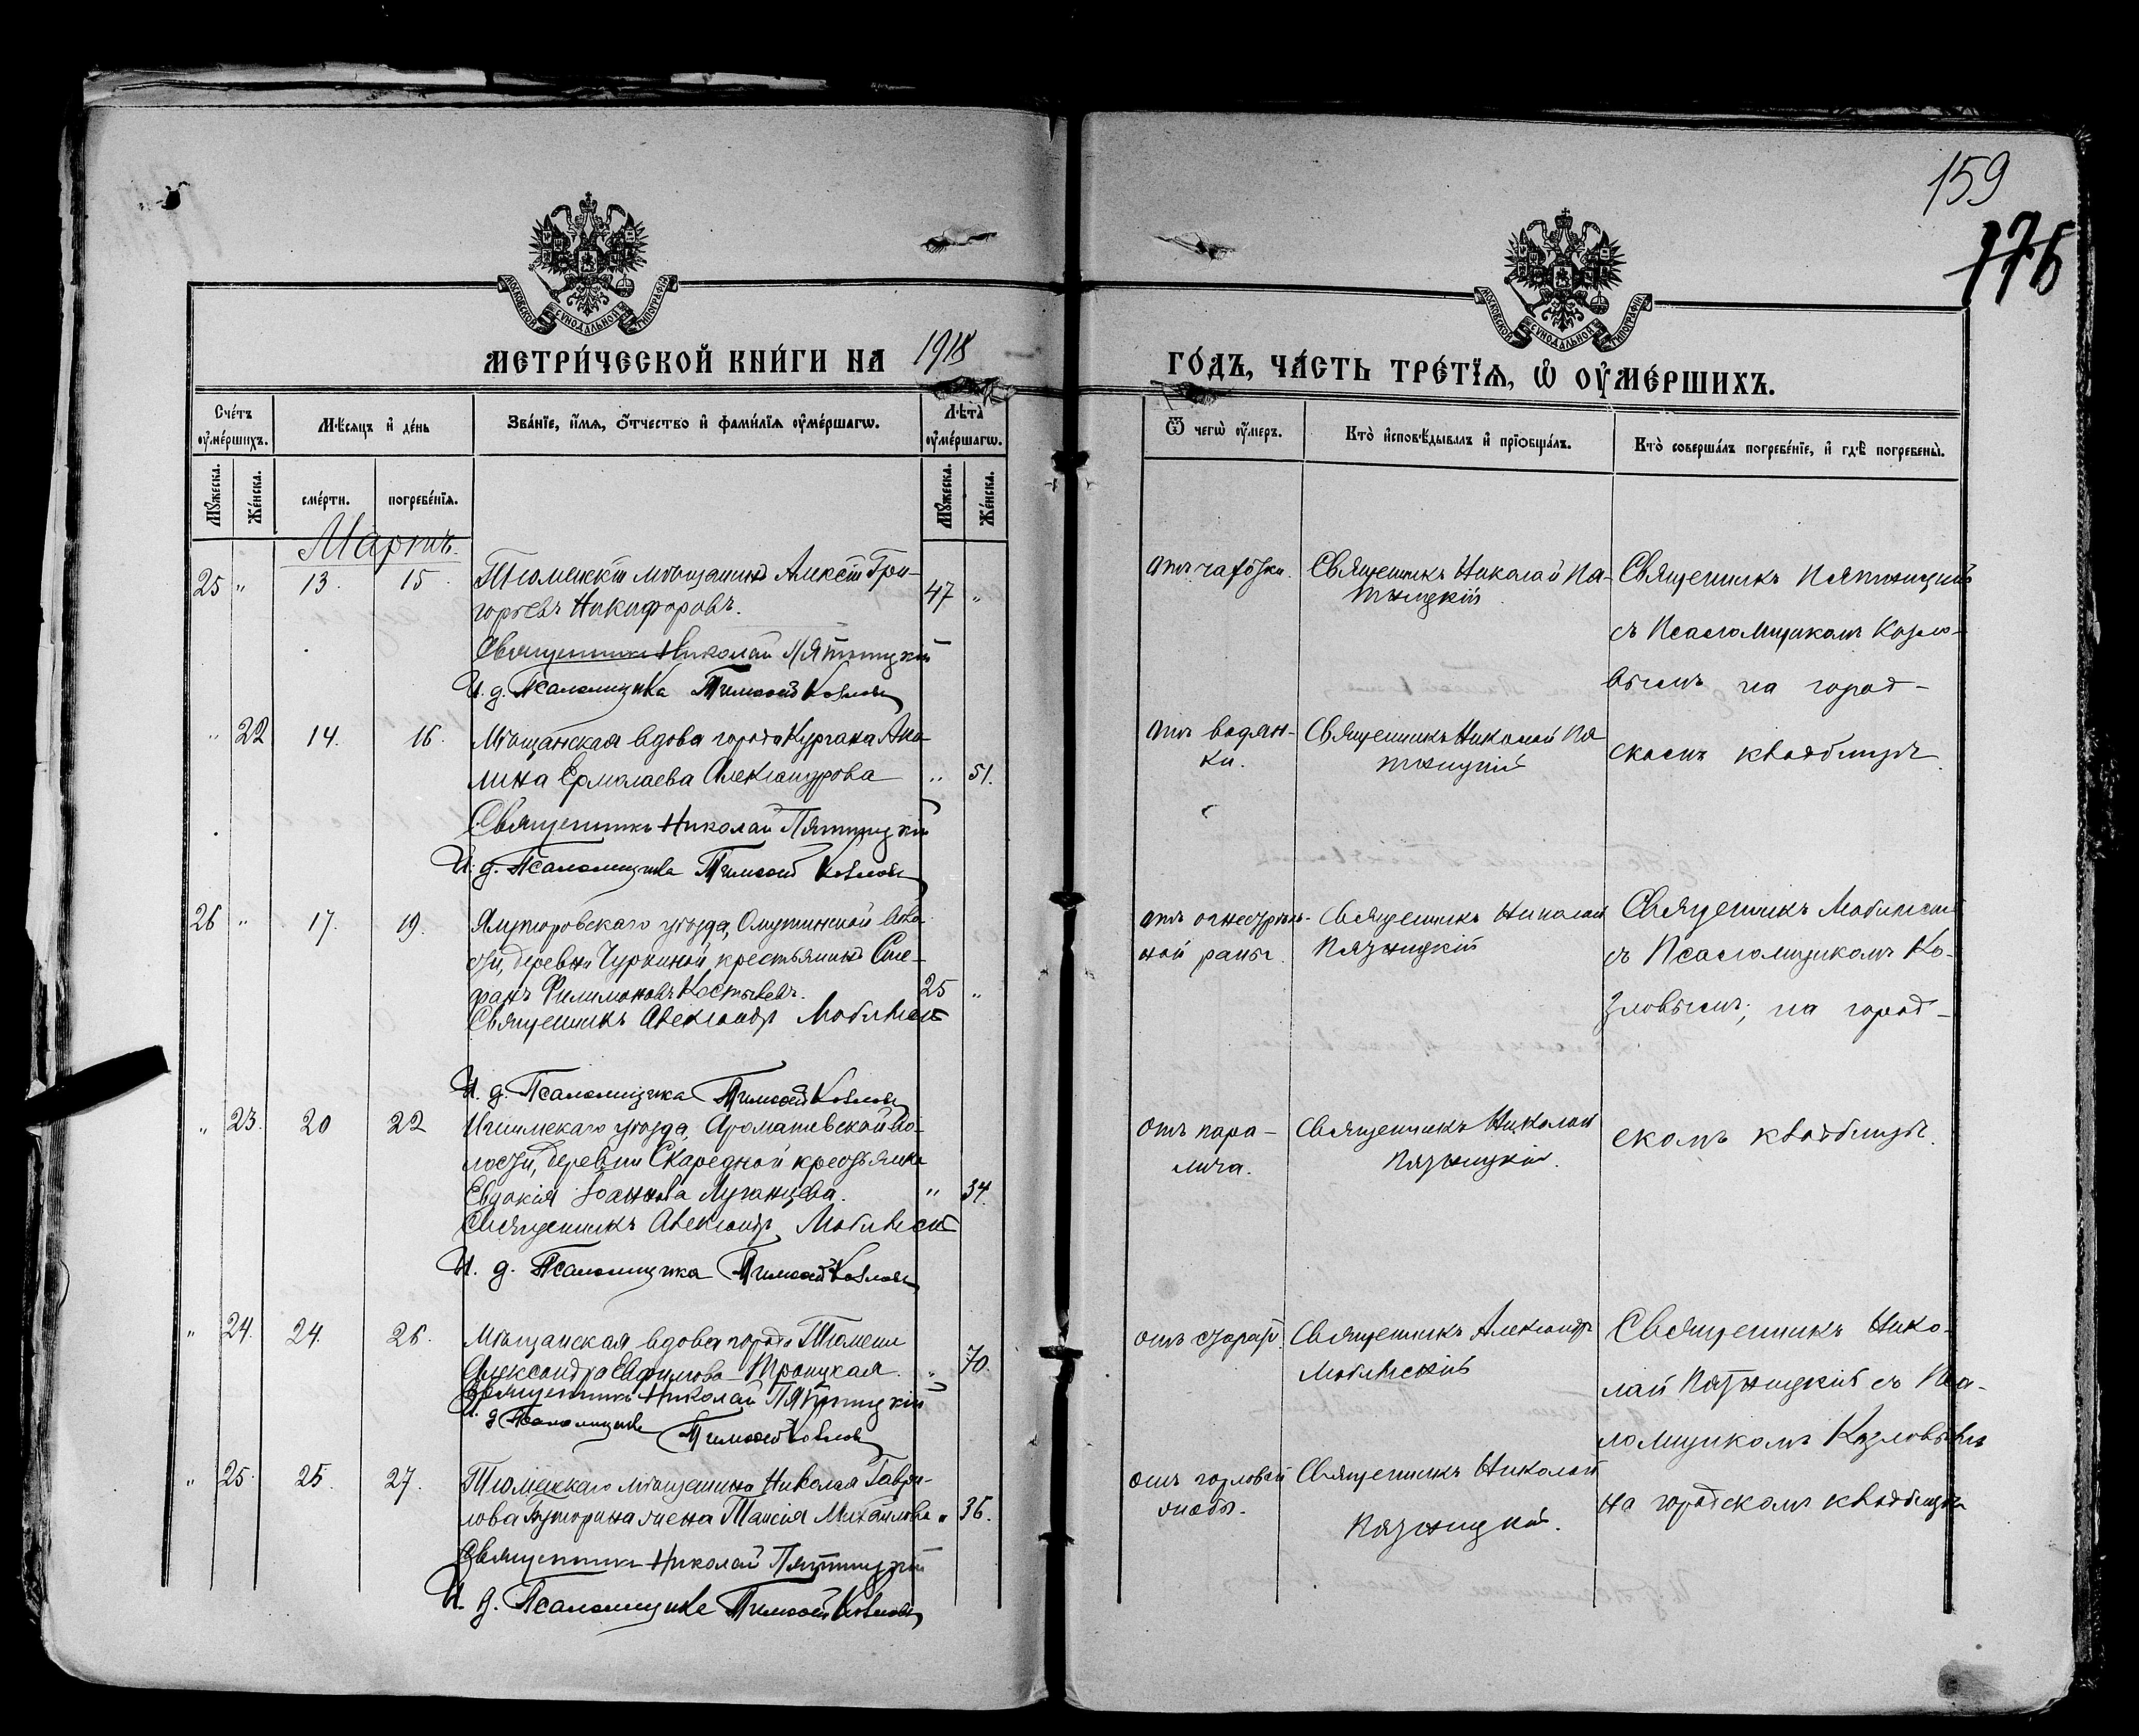 159
176
МОСКОВСКОЙ СѴНОДАЛЬНОЙ ТИПОГРАФІИ
МОСКОВСКОЙ СѴНОДАЛЬНОЙ ТИПОГРАФІИ
МЕТРИ́ЧЕСКОЙ КНИ́ГИ НА 1918
ГО́ДЪ, ЧА́СТЬ ТРЕ́ТЇѦ, Ѡ҆ ОУ҆МЕ́РШИХЪ.
Сче́тъ оу҆ме́ршихъ.
Мѣ́сяцъ и҆ де́нь
Зва́нїе, и҆́мя, ѻ҆́тчество и҆ фами́лїя оу҆ме́ршагѡ.
Лѣ́та оу҆ме́ршагѡ.
Ѿ чегѡ̀ оу҆́меръ.
Кто̀ и҆сповѣ́дывалъ и҆ прїѡбща́лъ.
Кто̀ соверша́лъ погребе́нїе, и҆ гдѣ̀ погребены̀.
Мꙋ́жеска.
Же́нска.
сме́рти.
погребе́нїя.
Мꙋ́жеска.
Же́нска.
Мартъ.
25 " 13. 15. Тюменскій мѣщанинъ Алексѣй Гри-
горьевъ Никифоровъ. 47 "
Священникъ Николай Пятницкій
И. д. Псаломщика Тимофей Козловъ
отъ чахотки.
Священникъ Николай Пя-
тницкій
Священникъ Пятницкій
съ Псаломщикомъ Козло-
вымъ на город-
скомъ кладбищѣ.
" 22 14. 16. Мѣщанская вдова города Кургана Аки-
лина Ермолаева Александрова " 51.
Священникъ Николай Пятницкій
И. д. Псаломщика Тимофей Козловъ
отъ водян-
ки.
Священникъ Николай Пя
тницкій
26 " 17. 19. Ялуторовскаго уѣзда, Омутинской воло
сти, деревни Чуркиной крестьянинъ Сте-
фанъ Филимоновъ 25 "
Священникъ Александръ
И. д. Псаломщика Тимофей Козловъ
отъ огнестрѣль-
ной раны.
Священникъ Николай
Пятницкій
Священникъ
съ Псаломщикомъ Ко-
зловымъ, на город-
скомъ кладбищѣ.
" 23. 20 22 Ишимскаго уѣзда, Аромашевской во-
лости, деревни Скаредной крестьянка
Евдокія Іоаннова " 34.
Священникъ Александръ
И. д. Псаломщика Тимофей Козловъ
отъ пара-
лича.
Священникъ Николай
Пятницкій.
" 24. 24. 26. Мѣщанская вдова города Тюмени
Александра Евфимова Троицкая. " 70.
Священникъ Николай Пятницкій
И. д. Псаломщика Тимофей Козловъ
отъ старос.
Священникъ Александръ
Священникъ Нико-
лай Пятницкій съ Пса-
ломщикомъ Козловымъ
на городскомъ кладбищѣ
" 25. 25. 27. Тюменскаго мѣщанина Николая Гаври-
лова жена Таисія Михайлова " 36.
Священникъ Николай Пятницкій
И. д. Псаломщика Тимофей Козловъ
отъ горловой
жабы.
Священникъ Николай
Пятницкій.